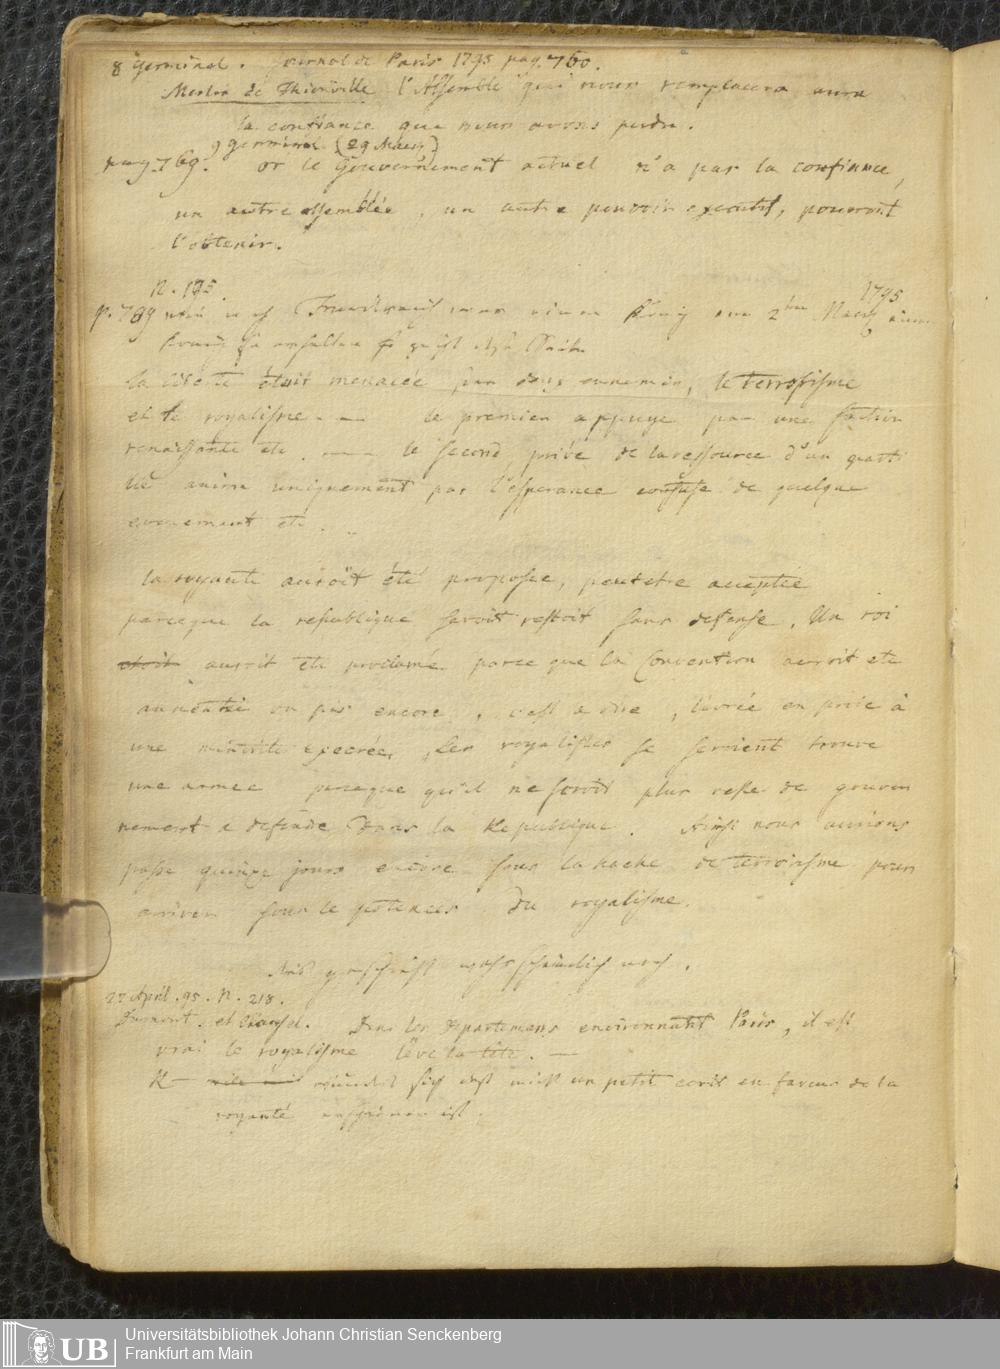 8 Germinal. Journal de Paris 1795 pag. 760.
Merlin de Thionville l'Assemblé qui nous remplacera aura
la confiance que nous avons perdu.
9 Germinal (29 Maerz)
pag. 769. or le Gouvernement actuel n'a pas la confiance,
un autre assemblée, un autre pouvoir executif, pourroit
l'obtenir.
N. 193.
1795
p. 789 am 2ten Maerz
la liberté étoit menacée par deux ennemis, le terrorisme
et le royalisme — — le premier appuye par une faction
renaissante etc. — — le second, privé de la ressource d'un parti
lié animé uniquement par l'esperance confuse de quelque
evenement etc.
la royauté auroit été proposee, peutetre acceptée
parceque la republique seroit restoit sans defense. Un roi
etoit auroit ete proclamé parce que la Convention auroit ete
aneantie ou pis encore, c'est a dire, livrée en proie à
une minorite execrée, Les royalistes se seroient trouve
une armee parceque qu'il ne seroit plus reste de gouver
nement a defendre dans la Republique. Ainsi nous aurions
passe quinze jours encore sous la hache de terrorisme pour
arriver sous le potences du royalisme.
geschieht wahrscheinlich noch.
27 April. 95. N. 218.
Dumont. et Chasel. Dans les departemens environnants Paris, il est
vrai le royalisme lêve la tête. —
R — sich daß nicht un petit ecrit en faveur de la
royauté erschienen ist.
UB
Universitätsbibliothek Johann Christian Senckenberg
Frankfurt am Main